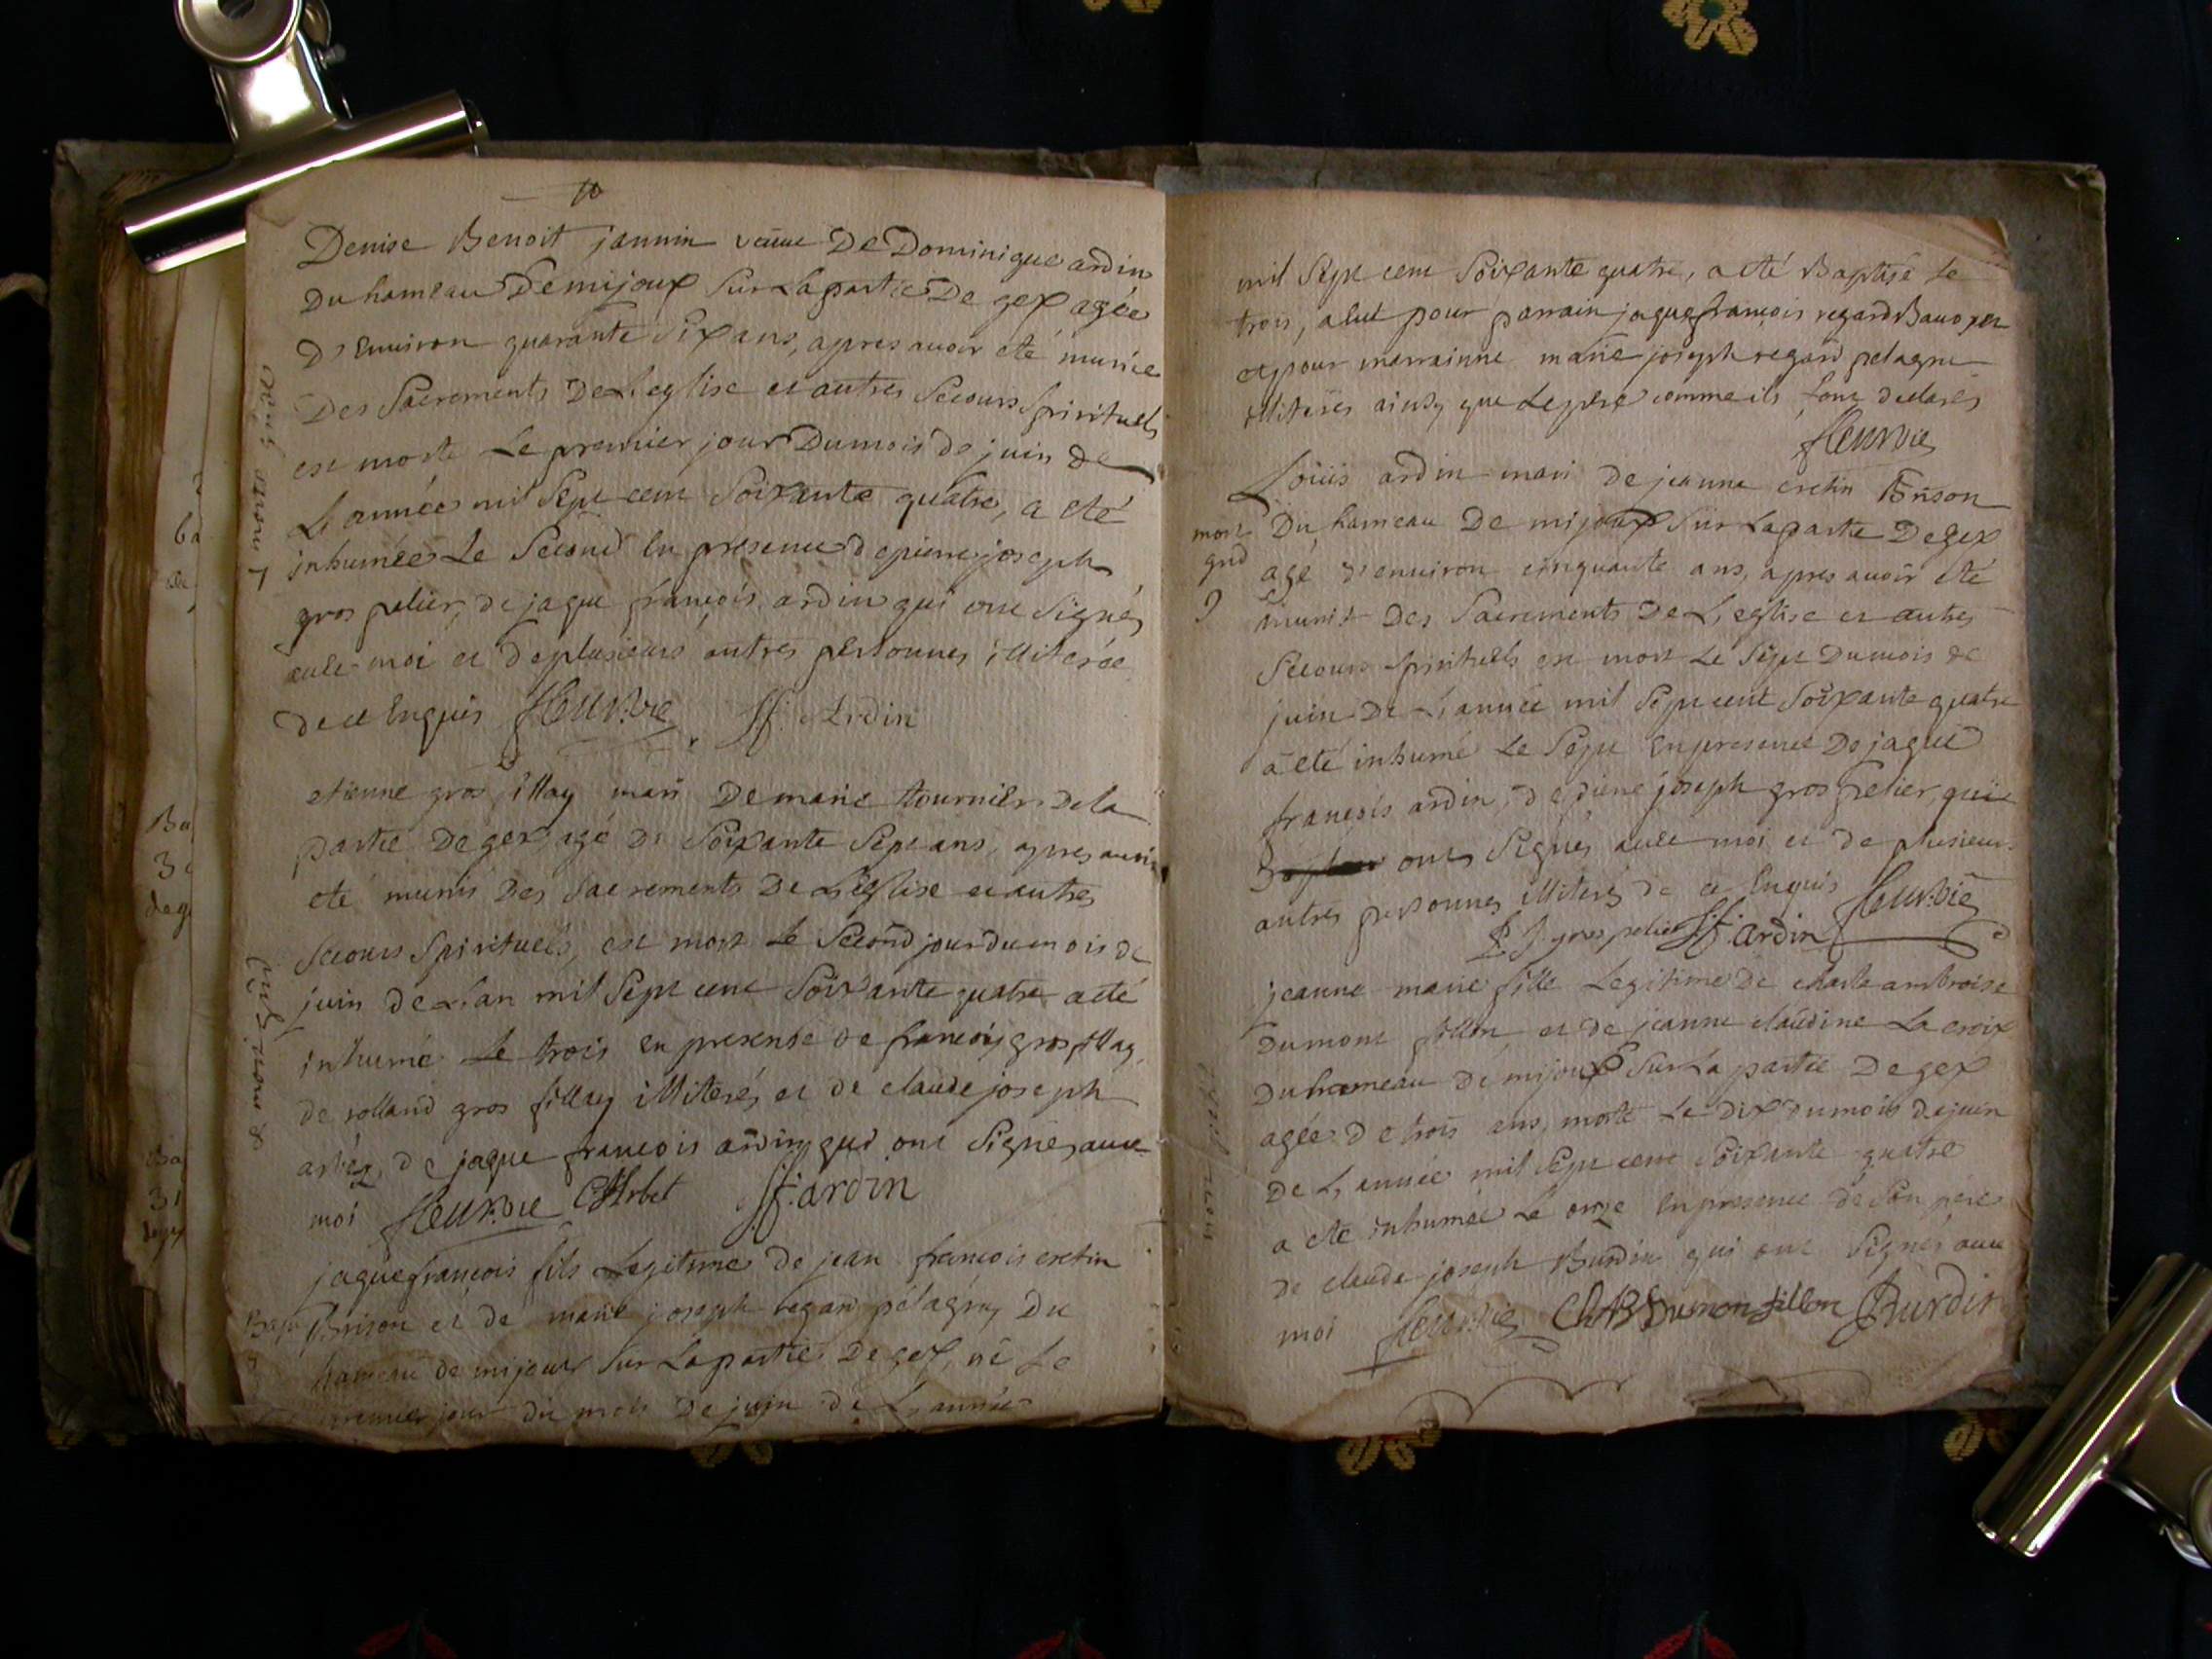 10
Denise Benoit jannin veüue De Dominique ardin
Du hameau Demijoux Sur La partie De gex agée
D'Environ quarante Six ans, apres avoir eté munie
Des Sacrements De L'eglise et autres Secours Spirituels
est morte Le premier jour Du mois de juin de
L'année mil Sept cent Soixante quatre, a eté
inhumée Le Second En presence de pierre joseph
gros pelier, de jaque françois ardin qui ont Signés
avec moi et de plusieurs autres personnes illiterée
de ce Enquis J f. Ardin
etienne gros fillay mari De marie tournier De la
partie De gex agé De Soixante Sept ans, apres avoir
eté munis Des Sacrements De L'Eglise et autres
Secours Spirituels, est mort Le Second jour du mois de
juin de L'an mil Sept cent Soixante quatre a eté
inhumé Le trois en presense de françois gros fillay,
de rolland gros fillay illiterés, et de claude joseph
de jaque françois ardin, qui ont Signés avec
moi J.f. ardin
jaque françois fils Legitime de jean françois cretin
Brison et de marie joseph regard pelagru, Du
hameau de mijoux Sur La partie De gex, né Le
premier jour du mois De juin de L'année
mil Sept cent Soixante quatre, a eté Baptisé Le
trois, a eut pour parrain jaque françois regard
et pour marrainne marie joseph regard pelagru
illiterés ainsy que Le pere comme ils sont declarés
Loüis ardin mari de jeanne cretin Brison
mort
grd
Du hameau De mijoux Sur La partie De gex
agé d'environ cinquante ans, apres avoir eté
munit Des Sacrements De L'eglise et autres
Secours Spirituels est mort Le Sept Du mois de
juin De L'année mil Sept cent Soixante quatre
a eté inhumé Le Sept En presence De jaque
françois ardin, de pierre joseph gros pelier, qui
ont Signés avec moi et de plusieurs
autres personnes illiterés de ce Enquis
P J gros pelier J f. ardin
jeanne marie fille Legitime de charle ambroise
Dumont fillon et de jeanne claudine La croix
Du hameau de mijoux Sur La partie De gex
agée De trois ans, morte Le Dix Du mois de juin
De L'année mil Sept cent Soixante quatre
a eté inhumée Le onze En presence de Son pere
de claude joseph Burdin qui ont Signés avec
moi Dumon fillon Burdin